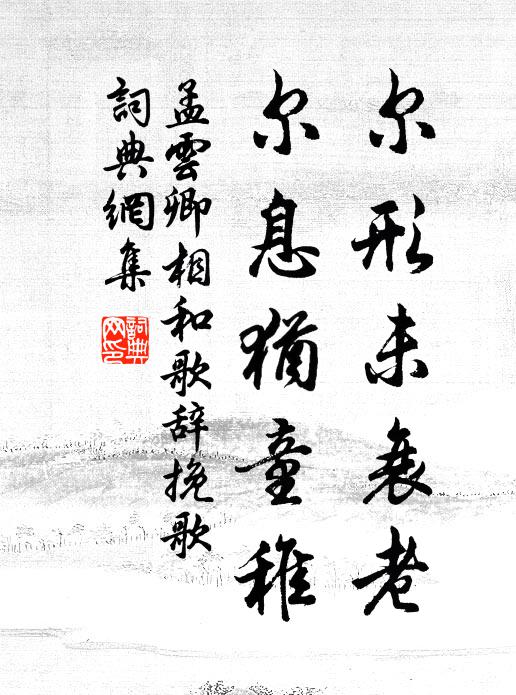 尔形未衰老
尔息犹童稚
孟雲卿相和歌辞挽歌
詞典網集
詞典网印